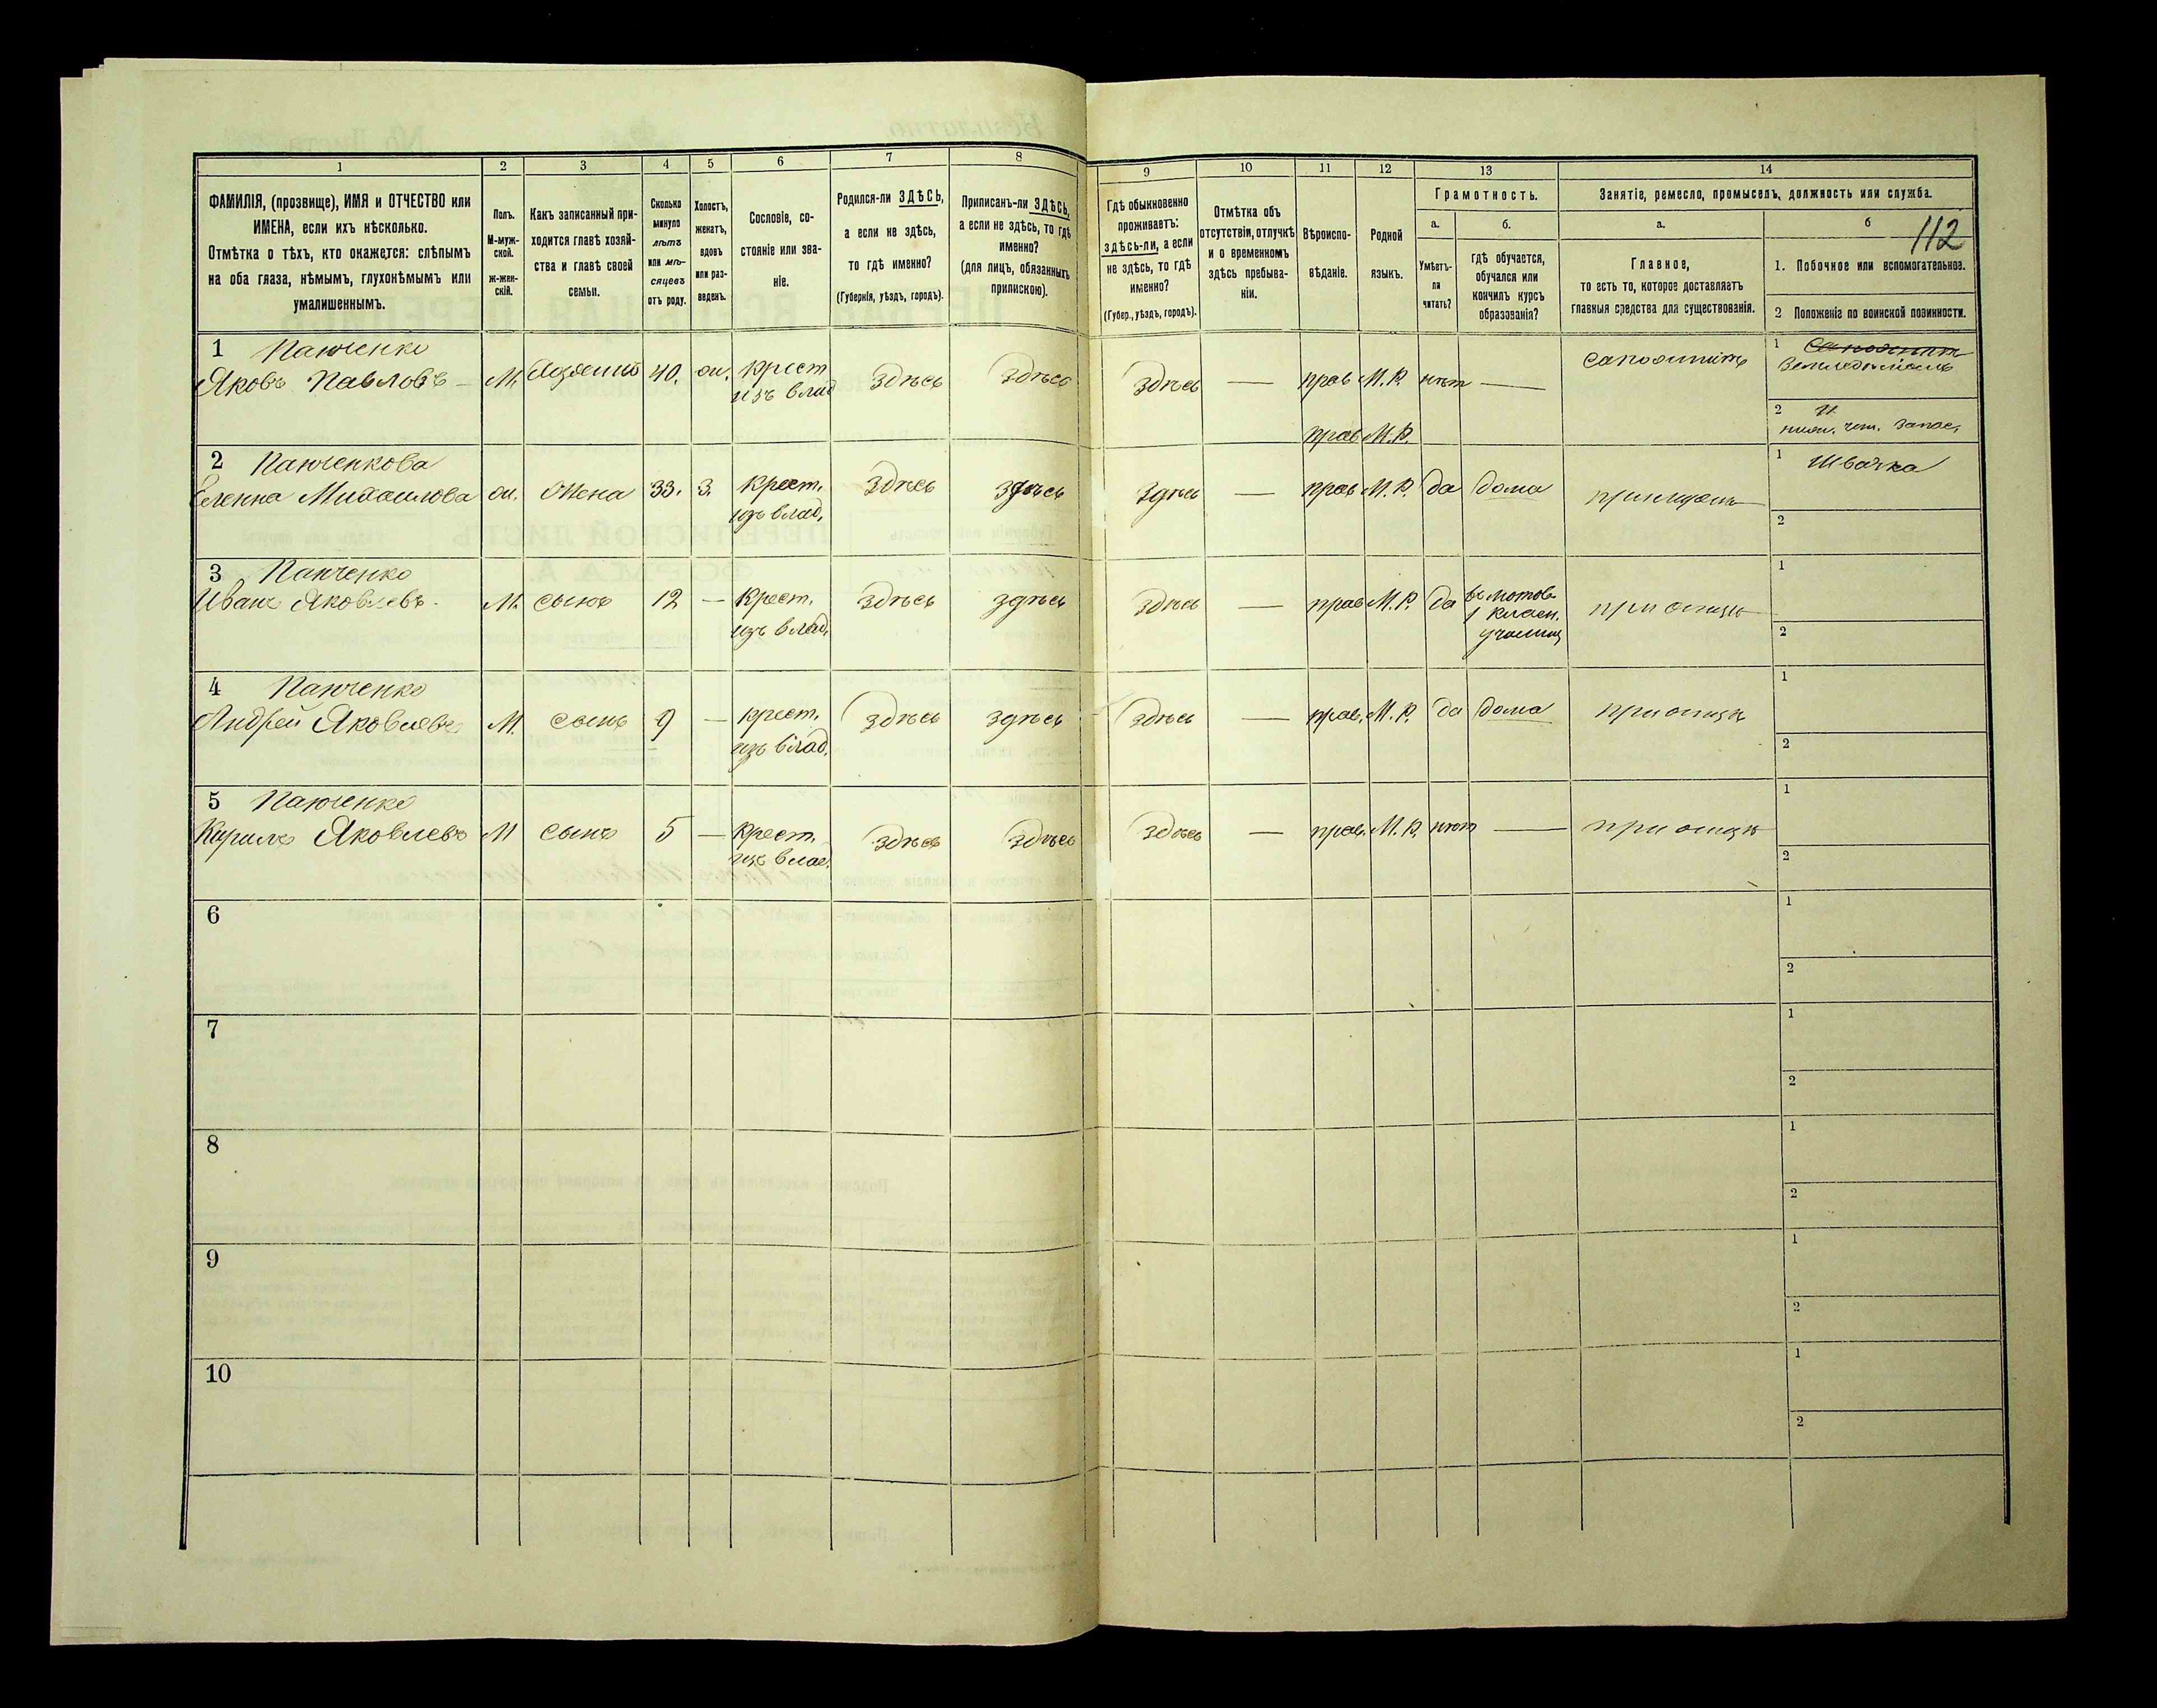 1
2
3
4
5
6
7
8
9
10
11
12
13
14
ФАМИЛІЯ, (прозвище), ИМЯ и ОТЧЕСТВО или
ИМЕНА, если ихъ нѣсколько.
Отмѣтка о тѣхъ, кто окажется: слѣпымъ
на оба глаза, нѣмымъ, глухонѣмымъ или
умалишеннымъ.
Полъ.
М-муж-
ской.
ж-жен-
скій.
Какъ записанный при-
ходится главѣ хозяй-
ства и главѣ своей
семьи.
Сколько
минуло
лѣтъ
или мѣ-
сяцевъ
отъ роду.
Холостъ,
женатъ,
вдовъ
или раз-
веденъ.
Сословіе, со-
стояніе или зва-
ніе.
Родился-ли ЗДѢСЬ,
а если не здѣсь,
то гдѣ именно?
(Губернія, уѣздъ, городъ).
Приписанъ-ли ЗДѢСЬ,
а если не здѣсь, то гдѣ
именно?
(для лицъ, обязанныхъ
припискою).
Гдѣ обыкновенно
проживаетъ:
здѣсь-ли, а если
не здѣсь, то гдѣ
именно?
(Губер., уѣздъ, городъ).
Отмѣтка объ
отсутствіи, отлучкѣ
и о временномъ
здѣсь пребыва-
ніи.
Вѣроиспо-
вѣданіе.
Родной
языкъ.
Грамотность.
а.
б.
Умѣетъ-
ли
читать?
гдѣ обучается,
обучался или
кончилъ курсъ
образованія?
Занятіе, ремесло, промыселъ, должность или служба.
а.
б
112
Главное,
то есть то, которое доставляетъ
главныя средства для существованія.
1. Побочное или вспомогательное.
2 Положеніе по воинской повинности.
1 Панченко
Яковъ Павловъ М. Хозяинъ 40. ж. Крест. здѣсь здѣсь здѣсь — прав М.Р. нѣт —
изъ влад
1
Земледѣліемъ
2
запас.
прав М.Р.
2 Панченкова
Еленна Михаилова ж. Жена 33. З. Крест. здѣсь здѣсь здѣсь — прав М.Р. да дома
изъ влад.
1 Швачка
2
3 Панченко
Иванъ Яковлевъ М. сынъ 12 — Крест. здѣсь здѣсь здѣсь — прав М.Р. да
1 класн.
училищ
при отцѣ
изъ влад.
1
2
4 Панченко
Андрей Яковлевъ М. сынъ 9 — крест. здѣсь здѣсь здѣсь — прав. М.Р. да дома при отцѣ
изъ влад.
1
2
5 Панченко
Кирилъ Яковлевъ М сынъ 5 — Крест. здѣсь здѣсь здѣсь — прав. М.Р. нѣт — при отцѣ
изъ влад.
1
2
6
1
2
7
1
2
8
1
2
9
1
2
10
1
2